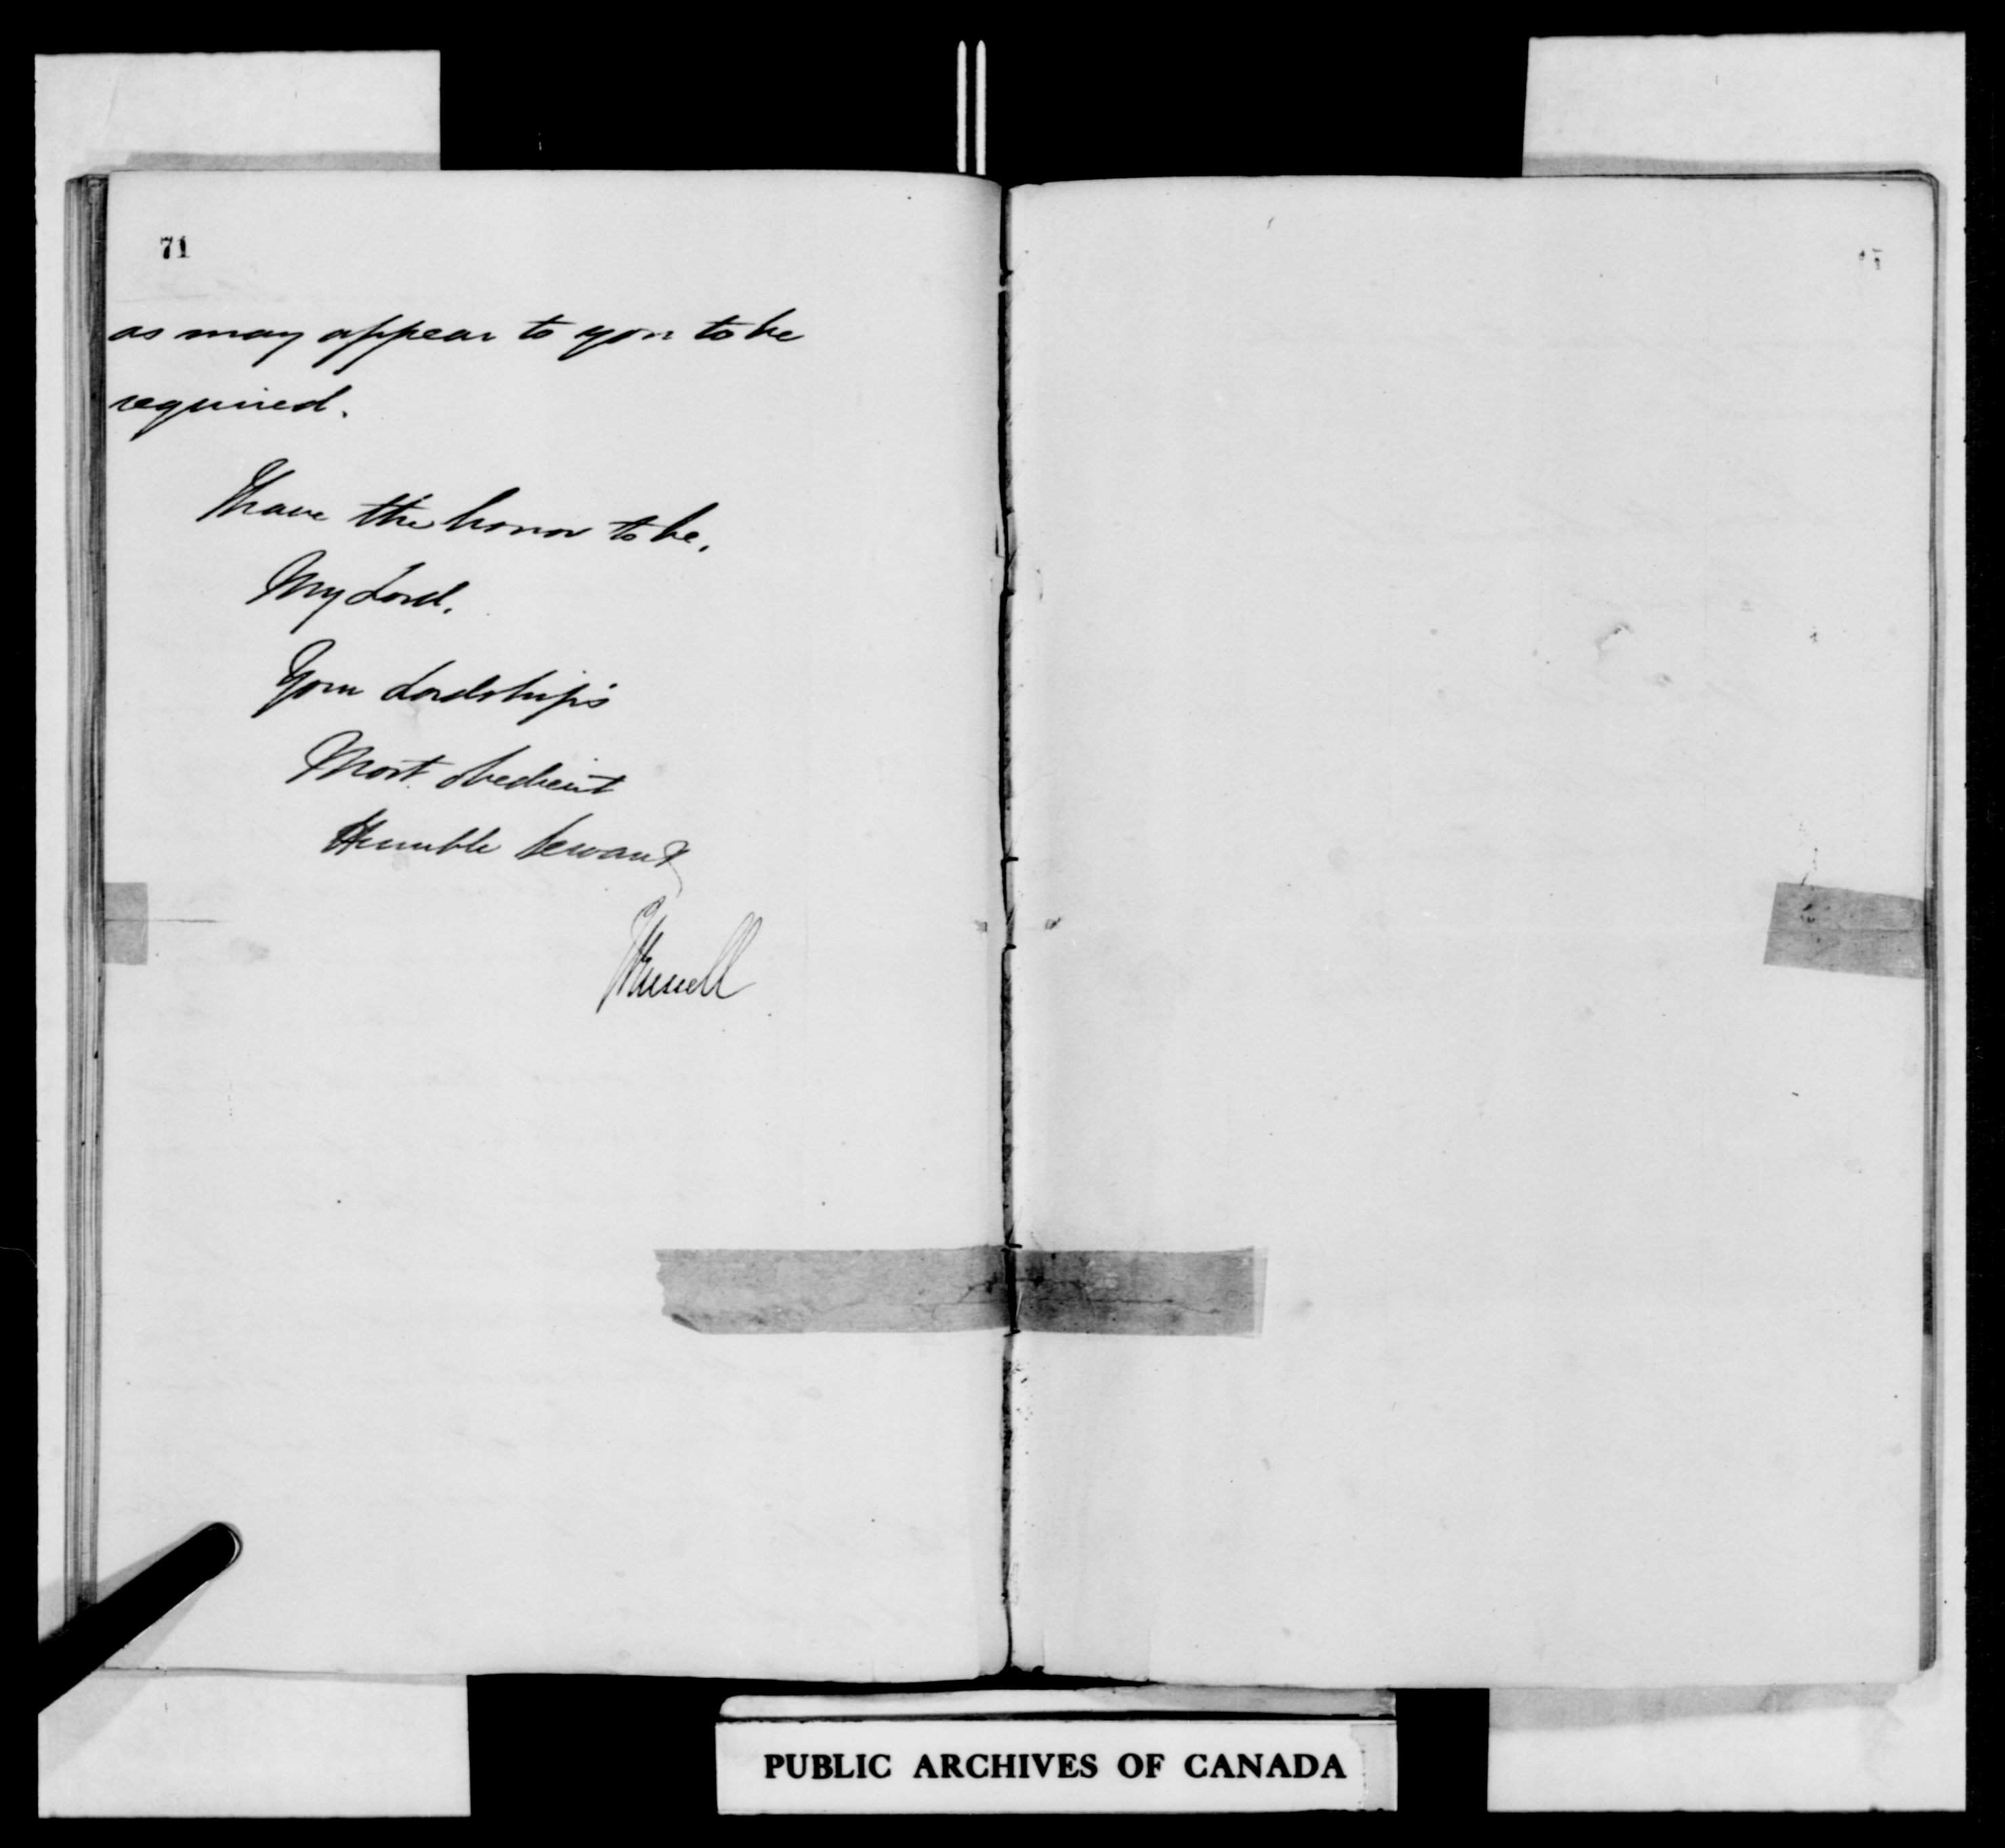 71
as may appear to you to be
required.
I have the honor to be,
My Lord,
Your Lordship's
Most obedient
Humble Servant
J Russell
PUBLIC ARCHIVES OF CANADA